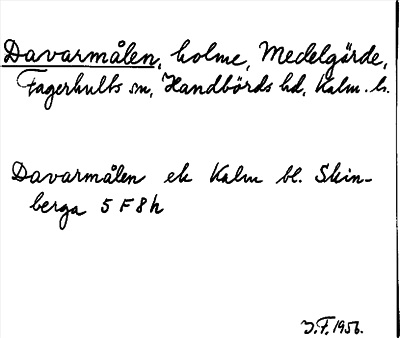 Davarmålen, holme, Medelgärde,
Fagerhults sn, Handbörds hd, Kalm. l.
Davarmålen ek Kalm bl. Skin-
berga 5 F 8 h
J.F. 1956.